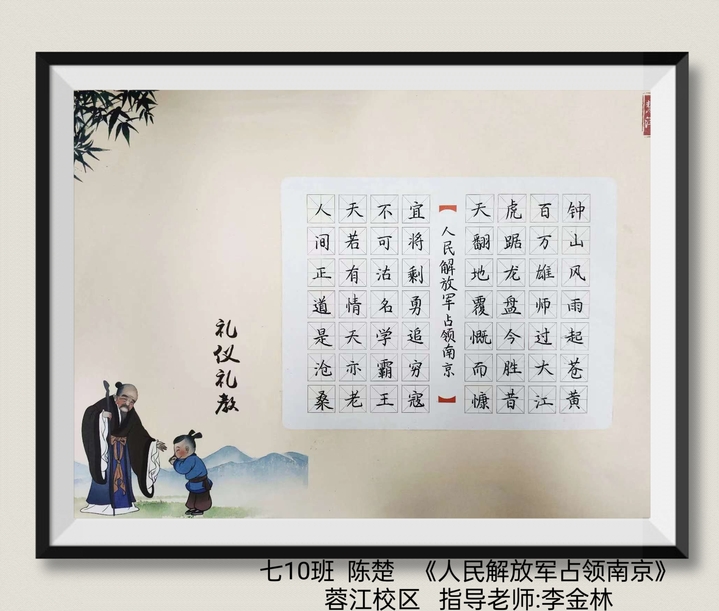 钟山风雨起苍黄
百万雄师过大江
虎踞龙盘今胜昔
天翻地覆慨而慷
【人民解放军占领南京】
宜将剩勇追穷寇
不可沽名学霸王
天若有情天亦老
人间正道是沧桑
礼仪礼教
七10班 陈楚 《人民解放军占领南京》
蓉江校区 指导老师:李金林